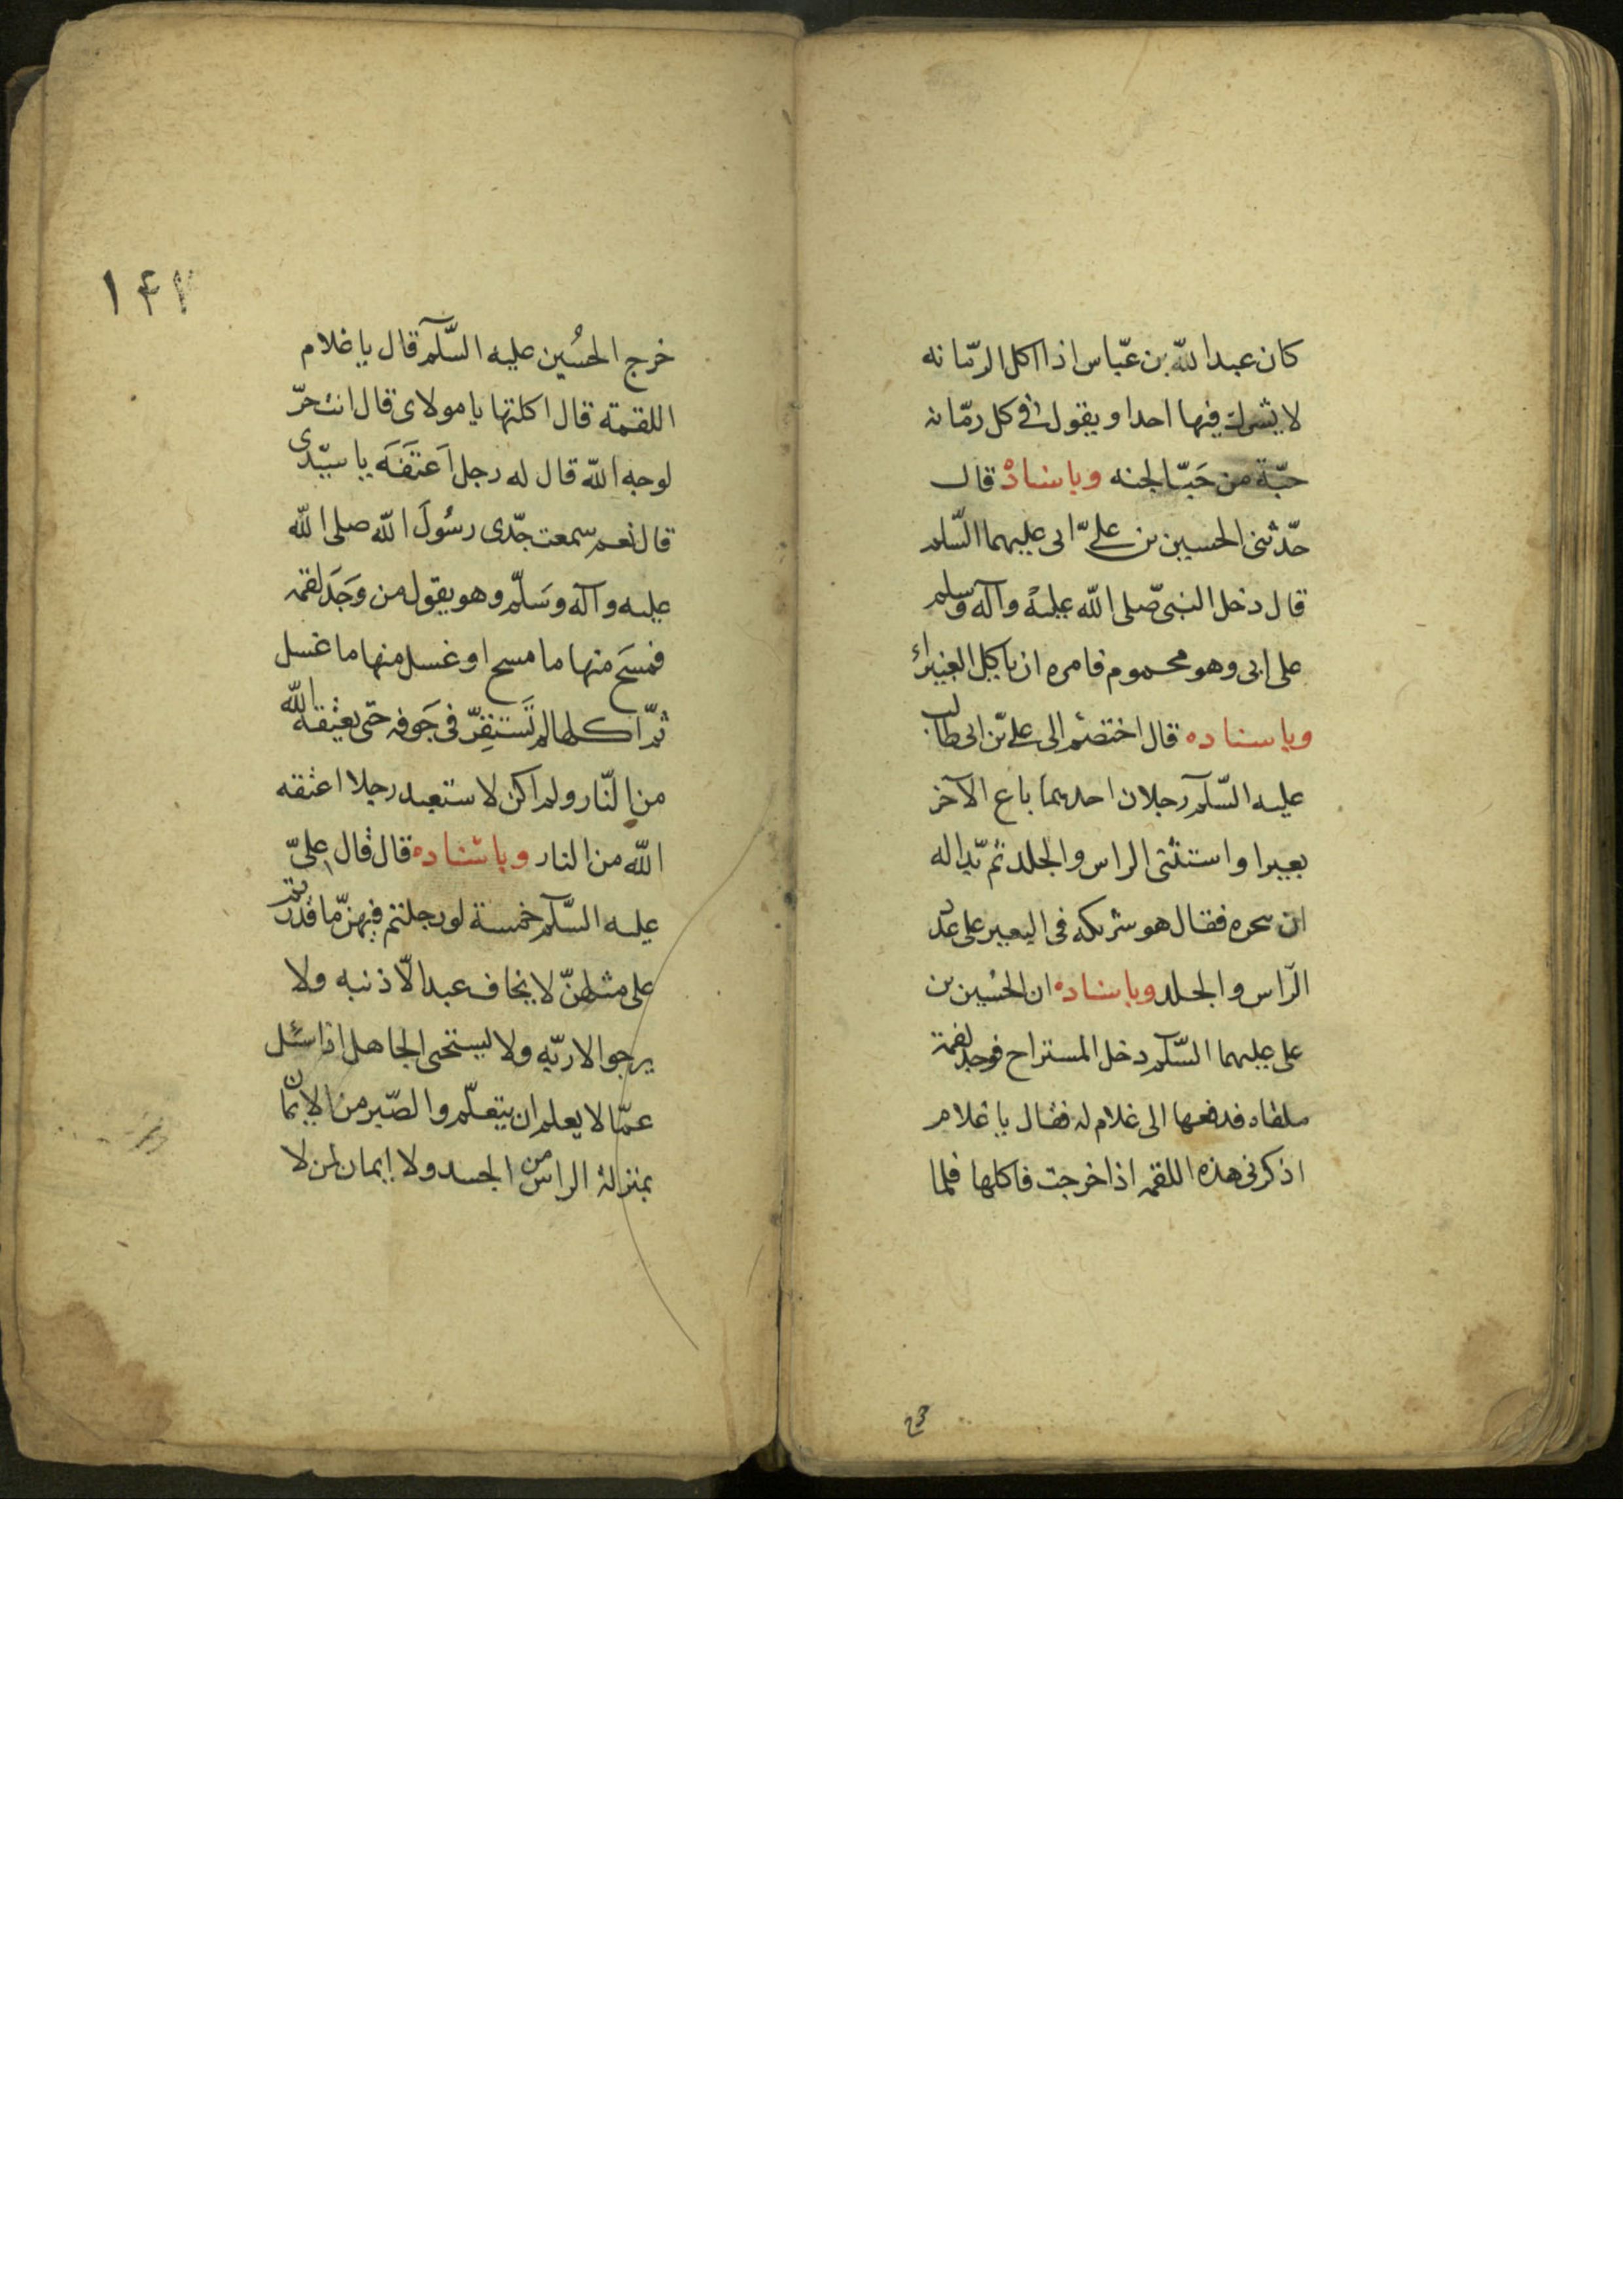 كان عبدالله بن عبّاس اذا اكل الرمّانه
لا يشرك فيها احدا و يقول في كل رمّانه
حبّة من حَبّ الجنه وباسناده قال
حدّثنى الحسين بن علىّ ابى عليهما السّلم
قال دخل النبى صلى الله عليه وآله وسلم
على ابى وهو محموم فامره ان ياكل الغبيراء
وباسناده قال اختصم الى على بن ابى طالب
عليه السّلم رجلان احدهما باع الآخر
بعيرا واستثنى الراس والجلد ثم بدا له
ان ينحره فقال هو شريكه فى البعير على عدد
الرّاس والجلد وباسناده ان الحسين بن
على عليهما السّلم دخل المستراح فوجد لقمة
ملقاه فدفعها الى غلام له فقال يا غلام
اذكرنى هذه اللقمه اذا خرجت فاكلها فلما
١٤٢
خرج الحسُين عليه السّلم قال يا غلام
اللقمة قال اكلتها يا مولاى قال انت حرّ
لوجه الله قال له رجل اَعتَقتَه يا سيّدى
قال نعم سمعت جدّى رسُولَ الله صلى الله
عليه وآله وسَلّم وهو يقول من وَجَدَ لقمه
فمسَح منها ما مسح او غسل منها ما غسل
ثمّ اكلها لم تَستَقِرّ فى جَوفه حتى يعتقه الله
من النّار ولم اكن لاستعبد رجلا اعتقه
الله من النار وباسناده قال قال علىّ
عليه السّلم خمسة لو رحلتم فيهنّ ما قدرتم
على مثلهنّ لا يخاف عبد الّا ذنبه ولا
يرجوا الا ربّه ولا يستحى الجاهل اذا سئل
عمّا لا يعلم ان يتعلّم والصّبر من الايمان
بمنزلة الراس من الجسد ولا ايمان لمن لا